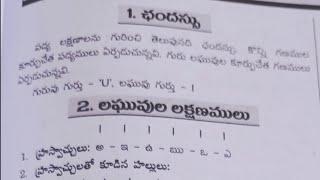 1. ఛందస్సు
పద్య లక్షణాలను గురించి తెలుపునది ఛందస్సు. కొన్ని గణముల
కూర్పుచేత పద్యములు ఏర్పడుచున్నవి. గురు లఘువుల కూర్పుచేత గణములు
ఏర్పడుచున్నవి.
గురువు గుర్తు - 'U', లఘువు గుర్తు - I
2. లఘువుల లక్షణములు
I I I I I I
1. హ్రస్వాచ్చులు: అ - ఇ - ఉ - ఋ - ఒ - ఎ
2. హ్రస్వాచ్చులతో కూడిన హల్లులు: